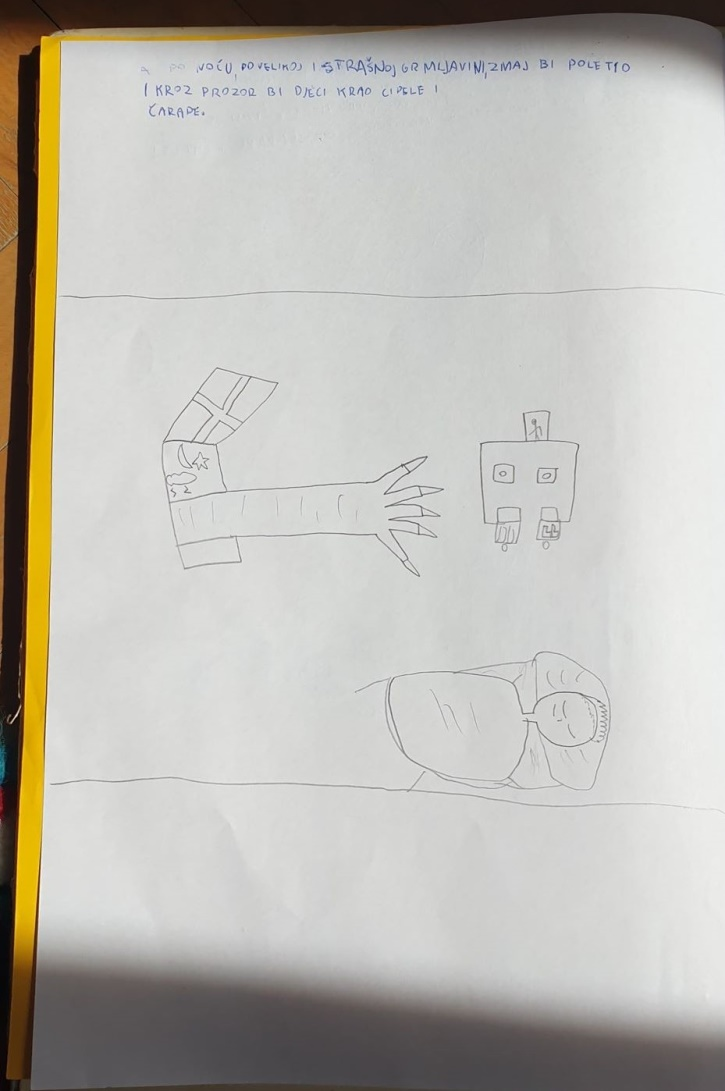 PO NOĆU, PO VELIKOJ I STRAŠNOJ GRMLJAVINI, ZMAJ BI POLETIO
I KROZ PROZOR BI DJECI KRAO CIPELE I
ČARAPE.